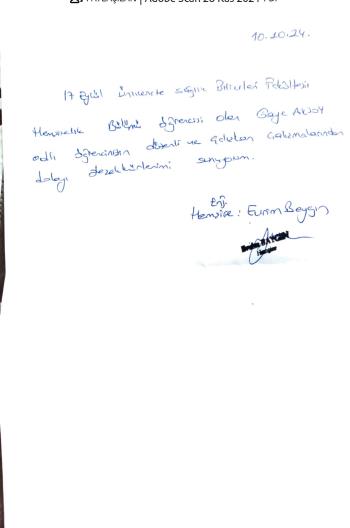 10.10.24.
17 Eylül Üniversite sağlık Bilimleri Fakültesi
Hemşirelik Bölümü öğrencisi olan Gaye Aksoy
adlı öğrencinizin düzenli ve çalışmalarından
dolayı teşekkürlerimi sunuyorum.
Hemşire: Evrim Baygın